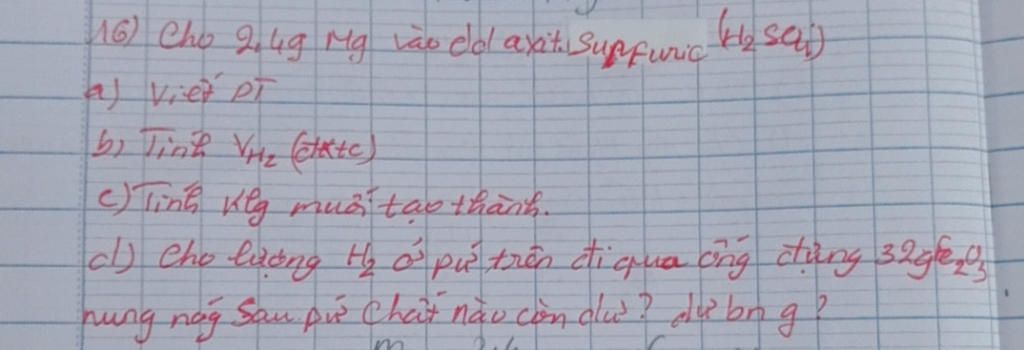 16) Cho 2,4g Mg vào dd axit Sunfuric (H2SO4)
a) Viết PT
b) Tính VH2 (đktc)
c) Tính klg muối tạo thành.
d) Cho lượng H2 ở pứ trên đi qua ống đựng 32g Fe2O3
nung nóng sau pứ chất nào còn dư? dư bn g?